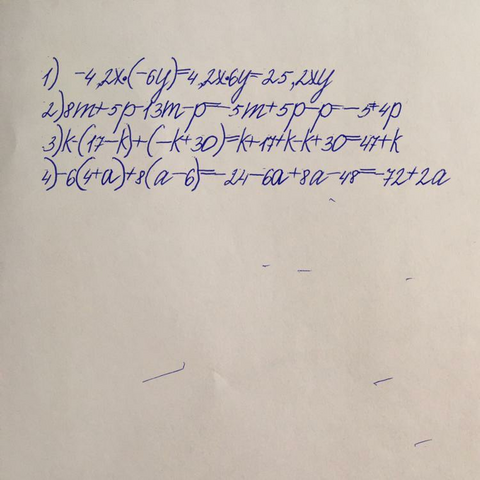 1) -4,2x·(-6y)=4,2x·6y=25,2xy
2) 8m+5p-13m-p=-5m+5p-p=-5+4p
3) k-(17-k)+(-k+30)=k+17+k-k+30=47+k
4) -6(4+a)+8(a-6)=-24-6a+8a-48=-72+2a